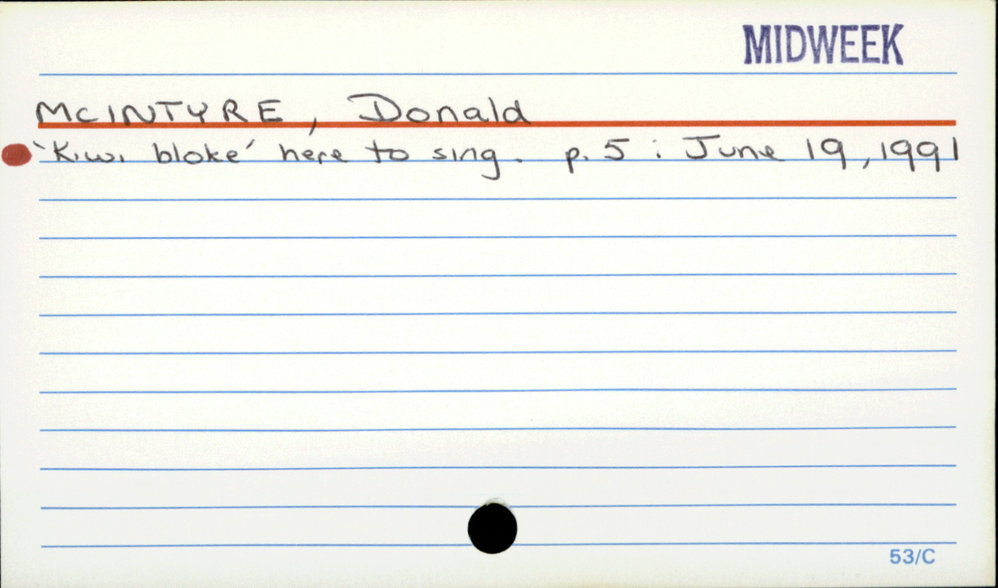 MIDWEEK
McINTYRE, Donald
'Kiwi bloke' here to sing. p. 5 : June 19, 1991
53/C